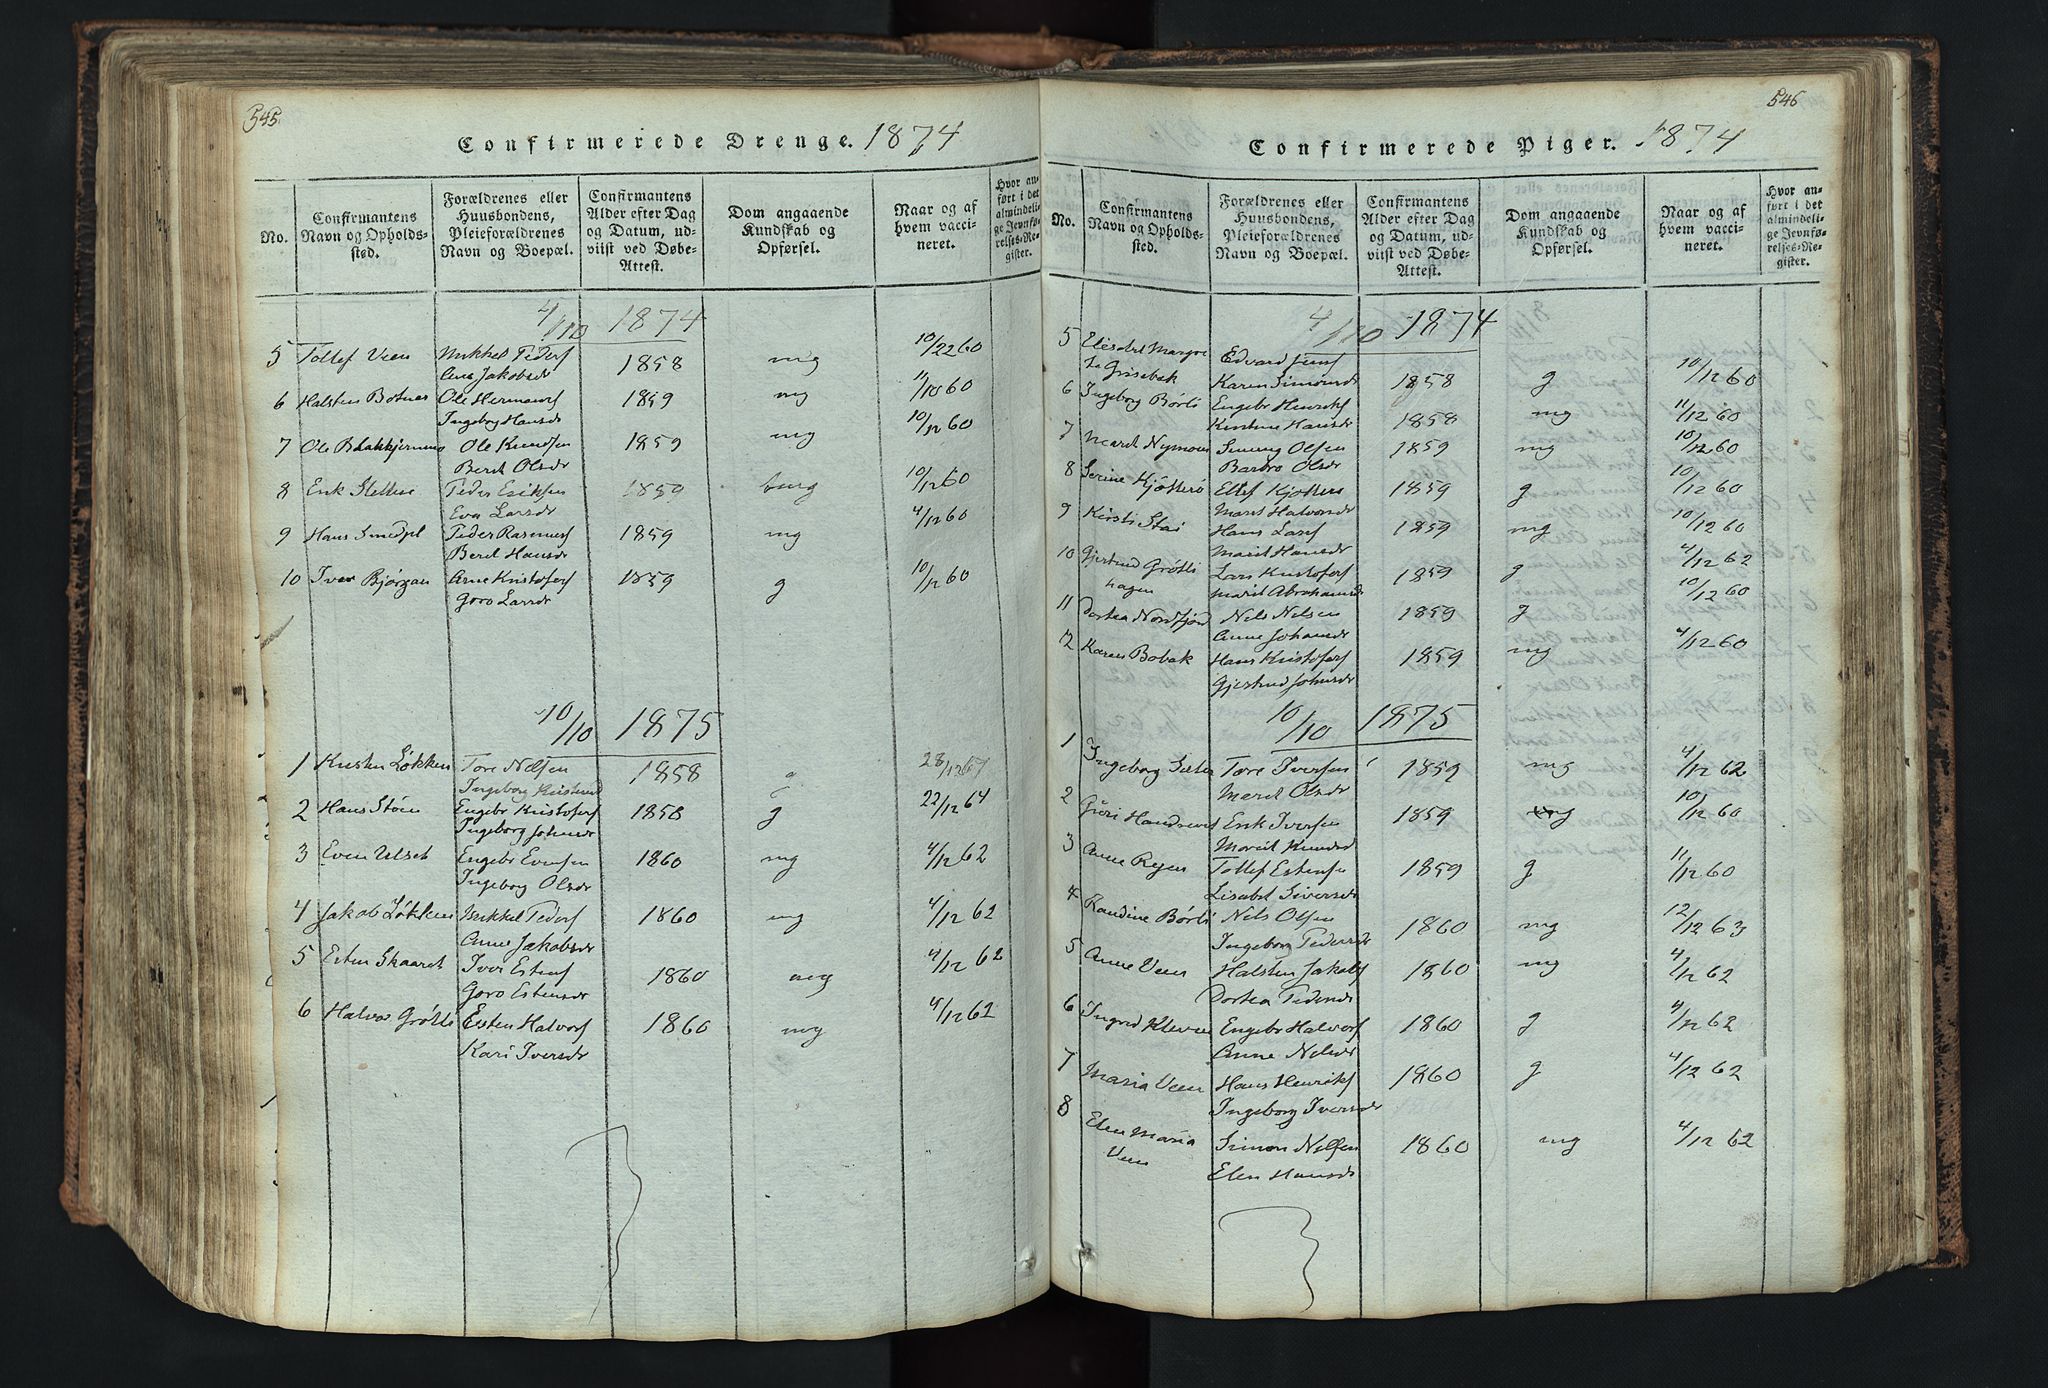 545.
Confirmerede Drenge. 1874
No.
Confirmantens Navn og Opholdssted.
Forældrenes eller Huusbondens, Pleieforældrenes Navn og Boepæl.
Confirmantens Alder efter Dag og Datum, udviist ved Døbe-Attest.
Dom angaaende Kundskab og Opførsel.
Naar og af hvem vaccineret.
Hvor anført i det almindelige Jevnførelses-Register.
4/10 1874
5 Tollef Veen Mikkel Peders 1858 mg 10/12 60
Ane Jakobsdr
6 Halsten Botnes Ole Hermans 1859 mg 11/10 60
Ingeborg Hansdr
7 Ole Ole Knudsen 1859 mg 10/12 60
Berit Olsdr
8 Erik Peder Eriksen 1859 10/12 60
Eva Larsdr
9 Hans Smedpl Peder Rasmus 1859 mg 4/12 60
Berit Hansdr
10 Iver Bjørgan Arne Kristofers 1859 g 10/12 60
Goro Larsdr
10/10 1875
1 Kristen Løkken Tore Nelsen 1858 g 28/12 67
Ingeborg
2 Hans Støen Engebr Kristofers 1858 g 22/12 64
Ingeborg Johnsdr
3 Even Ulset Engebr Evensen 1860 mg 4/12 62
Ingeborg Olsdr
4 Jakob Løkken Mikkel Peders 1860 mg 4/12 62
Anne Jakobsdr
5 Esten Skaaret Iver Estens 1860 mg 4/12 62
Goro Estensdr
6 Halvor Grøtli Esten Halvors 1860 mg 4/12 62
Kari Iversdr
546
Confirmerede Piger. 1874
No.
Confirmantens Navn og Opholdssted.
Forældrenes eller Huusbondens, Pleieforældrenes Navn og Boepæl.
Confirmantens Alder efter Dag og Datum, udviist ved Døbe-Attest.
Dom angaaende Kundskab og Opførsel.
Naar og af hvem vaccineret.
Hvor anført i det almindelige Jevnførelses-Register.
4/10 1874
5 Elisabet Margre
te Grisebak Edvard Jens
Karen Simonsdr 1858 g 10/12 60
6 Ingeborg Børli Engebr Henriks
Kirstine Hansdr 1858 mg 11/12 60
7 Marit Nymoen Olsen 1859 mg 10/12 60
Barbro Olsdr
8 Serine Kjøtterø Ellef 1859 g 10/12 60
Marit Halvorsdr
9 Kirsti Stai Hans Lars 1859 mg 10/12 60
Marit Hansdr
10 Gjertrud Grøtli
hagen Lars Kristofers 1859 g 4/12 62
Marit Abrahamsdr
11 Dortea Nordfjord Nels Nelsen 1859 g 10/12 60
Anne Johansdr
12 Karen Bobak Hans Kristofers 1859 mg 4/12 60
Gjertrud Johnsdr
10/10 1875
1 Ingeborg Sæter Tore Iversen 1859 mg 4/12 62
Marit Olsdr
2 Guri Erik Iversen 1859 mg 10/12 60
Marit Knudsd
3 Anne Rejen Tollef Estensen 1859 g 11/12 60
Lisabet Siversdr
4 Randine Børli Nels Olsen 1860 mg 12/12 63
Ingeborg Pedersdr
5 Anne Veen Halsten Jakobs 1860 mg 4/12 62
Dortea Pedersdr
6 Ingrid Kleven Engebr Halvors 1860 g 4/12 62
Anne Nelsdr
7 Maria Veen Hans Henriks 1860 g 4/12 62
Ingeborg Iversdr
8 Elen Maria
Veen Simon Nelsen 1860 mg 4/12 62
Elen Hansdr